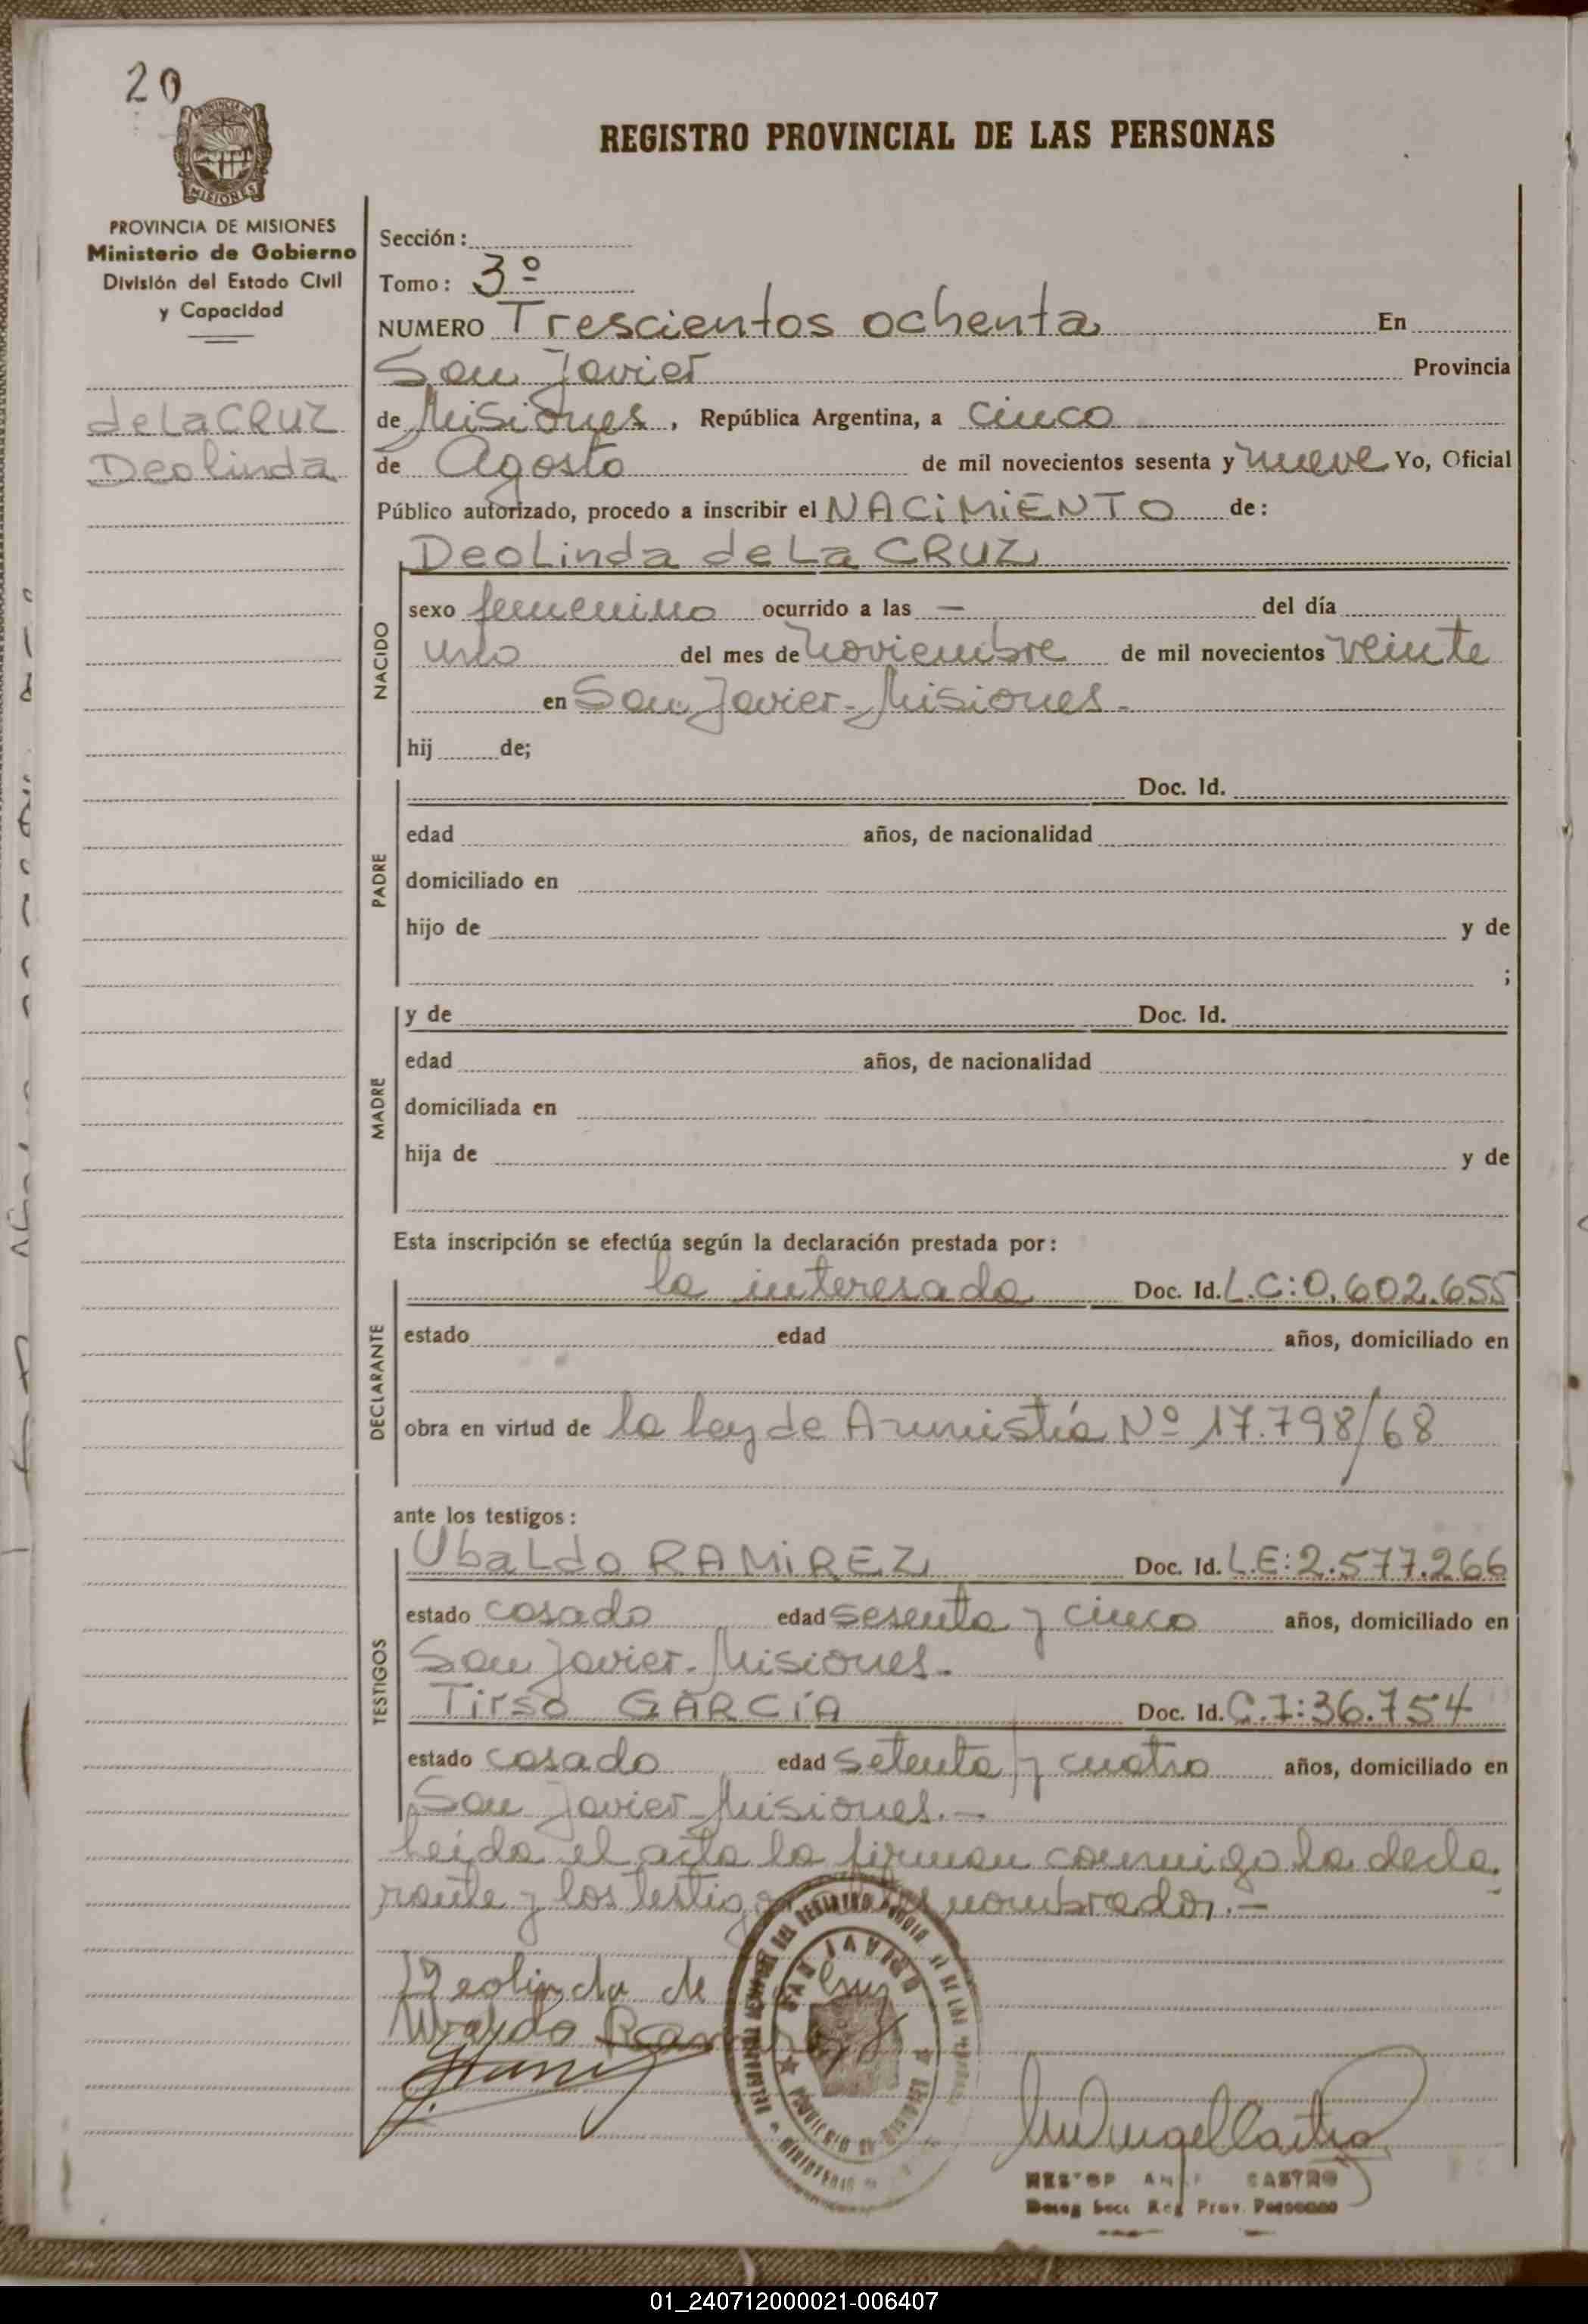 20
PROVINCIA DE MISIONES
REGISTRO PROVINCIAL DE LAS PERSONAS
PROVINCIA DE MISIONES
Ministerio de Gobierno
División del Estado Civil
y Capacidad
de La CRUZ
Deolinda
Sección:
Tomo: 3º
NUMERO Trescientos ochenta En
San Javier Provincia
de Misiones, República Argentina, a cinco
de Agosto de mil novecientos sesenta y nueve Yo, Oficial
Público autorizado, procedo a inscribir el NACIMIENTO de:
Deolinda de La CRUZ
NACIDO
sexo femenino ocurrido a las — del día
uno del mes de noviembre de mil novecientos veinte
en San Javier - Misiones -
hij de;
PADRE
Doc. Id.
edad años, de nacionalidad
domiciliado en
hijo de y de
;
MADRE
y de Doc. Id.
edad años, de nacionalidad
domiciliada en
hija de y de
Esta inscripción se efectúa según la declaración prestada por:
DECLARANTE
la interesada Doc. Id. L.C: 0.602.655
estado edad años, domiciliado en
obra en virtud de la ley de Amnistía Nº 17.798/68
ante los testigos:
TESTIGOS
Ubaldo RAMIREZ Doc. Id. L.E: 2.577.266
estado casado edad sesenta y cinco años, domiciliado en
San Javier - Misiones -
Tirso GARCÍA Doc. Id. C.I: 36.754
estado casado edad setenta y cuatro años, domiciliado en
San Javier - Misiones. —
Leída el acta la firman conmigo la decla
rante y los testigos nombrados. —
Deolinda de Cruz
Uvaldo Ramirez
SAN JAVIER
NESTOR CASTRO
Secc. Reg Prov. Personas
01_240712000021-006407